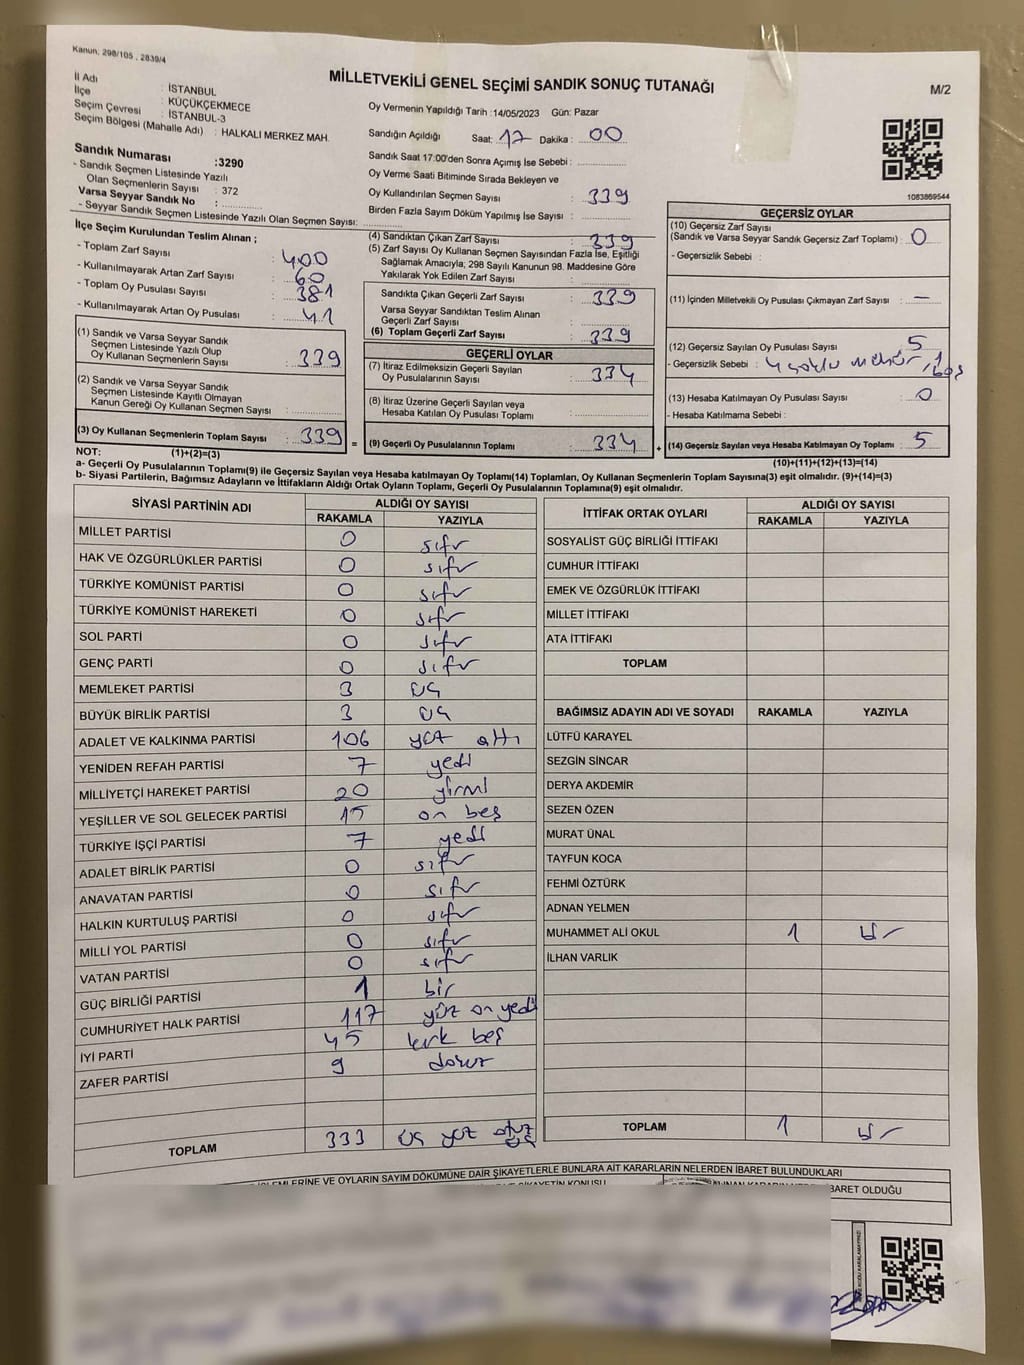 Kanun; 298/105 , 2839/4
MİLLETVEKİLİ GENEL SEÇİMİ SANDIK SONUÇ TUTANAĞI
M/2
İl Adı : İSTANBUL
İlçe : KÜÇÜKÇEKMECE
Seçim Çevresi : İSTANBUL-3
Seçim Bölgesi (Mahalle Adı) : HALKALI MERKEZ MAH.
Oy Vermenin Yapıldığı Tarih :14/05/2023 Gün: Pazar
Sandığın Açıldığı Saat: 17 Dakika : 00
Sandık Saat 17:00'den Sonra Açımış İse Sebebi :
Oy Verme Saati Bitiminde Sırada Bekleyen ve
Oy Kullandırılan Seçmen Sayısı : 339
Birden Fazla Sayım Döküm Yapılmış İse Sayısı :
Sandık Numarası :3290
- Sandık Seçmen Listesinde Yazılı
Olan Seçmenlerin Sayısı : 372
Varsa Seyyar Sandık No :
- Seyyar Sandık Seçmen Listesinde Yazılı Olan Seçmen Sayısı:
1083869544
İlçe Seçim Kurulundan Teslim Alınan ;
- Toplam Zarf Sayısı : 400
- Kullanılmayarak Artan Zarf Sayısı : 60
- Toplam Oy Pusulası Sayısı : 381
- Kullanılmayarak Artan Oy Pusulası : 41
(1) Sandık ve Varsa Seyyar Sandık
Seçmen Listesinde Yazılı Olup
Oy Kullanan Seçmenlerin Sayısı : 339
(2) Sandık ve Varsa Seyyar Sandık
Seçmen Listesinde Kayıtlı Olmayan
Kanun Gereği Oy Kullanan Seçmen Sayısı :
(3) Oy Kullanan Seçmenlerin Toplam Sayısı : 339 =
(4) Sandıktan Çıkan Zarf Sayısı : 339
(5) Zarf Sayısı Oy Kullanan Seçmen Sayısından Fazla İse, Eşitliği
Sağlamak Amacıyla; 298 Sayılı Kanunun 98. Maddesine Göre
Yakılarak Yok Edilen Zarf Sayısı :
Sandıkta Çıkan Geçerli Zarf Sayısı : 339
Varsa Seyyar Sandıktan Teslim Alınan
Geçerli Zarf Sayısı :
(6) Toplam Geçerli Zarf Sayısı : 339
GEÇERLİ OYLAR
(7) İtiraz Edilmeksizin Geçerli Sayılan
Oy Pusulalarının Sayısı : 334
(8) İtiraz Üzerine Geçerli Sayılan veya
Hesaba Katılan Oy Pusulası Toplamı :
(9) Geçerli Oy Pusulalarının Toplamı : 334 +
GEÇERSİZ OYLAR
(10) Geçersiz Zarf Sayısı
(Sandık ve Varsa Seyyar Sandık Geçersiz Zarf Toplamı) : 0
- Geçersizlik Sebebi :
(11) İçinden Milletvekili Oy Pusulası Çıkmayan Zarf Sayısı : —
(12) Geçersiz Sayılan Oy Pusulası Sayısı : 5
- Geçersizlik Sebebi : 4 mühür, 1 boş
(13) Hesaba Katılmayan Oy Pusulası Sayısı : 0
- Hesaba Katılmama Sebebi :
(14) Geçersiz Sayılan veya Hesaba Katılmayan Oy Toplamı : 5
(10)+(11)+(12)+(13)=(14)
NOT: (1)+(2)=(3)
a- Geçerli Oy Pusulalarının Toplamı(9) ile Geçersiz Sayılan veya Hesaba katılmayan Oy Toplamı(14) Toplamları, Oy Kullanan Seçmenlerin Toplam Sayısına(3) eşit olmalıdır. (9)+(14)=(3)
b- Siyasi Partilerin, Bağımsız Adayların ve İttifakların Aldığı Ortak Oyların Toplamı, Geçerli Oy Pusulalarının Toplamına(9) eşit olmalıdır.
SİYASİ PARTİNİN ADI ALDIĞI OY SAYISI
RAKAMLA YAZIYLA
MİLLET PARTİSİ 0 sıfır
HAK VE ÖZGÜRLÜKLER PARTİSİ 0 sıfır
TÜRKİYE KOMÜNİST PARTİSİ 0 sıfır
TÜRKİYE KOMÜNİST HAREKETİ 0 sıfır
SOL PARTİ 0 sıfır
GENÇ PARTİ 0 sıfır
MEMLEKET PARTİSİ 3 üç
BÜYÜK BİRLİK PARTİSİ 3 üç
ADALET VE KALKINMA PARTİSİ 106 yüz altı
YENİDEN REFAH PARTİSİ 7 yedi
MİLLİYETÇİ HAREKET PARTİSİ 20 yirmi
YEŞİLLER VE SOL GELECEK PARTİSİ 15 on beş
TÜRKİYE İŞÇİ PARTİSİ 7 yedi
ADALET BİRLİK PARTİSİ 0 sıfır
ANAVATAN PARTİSİ 0 sıfır
HALKIN KURTULUŞ PARTİSİ 0 sıfır
MİLLİ YOL PARTİSİ 0 sıfır
VATAN PARTİSİ 0 sıfır
GÜÇ BİRLİĞİ PARTİSİ 1 bir
CUMHURİYET HALK PARTİSİ 117 yüz on yedi
İYİ PARTİ 45 kırk beş
ZAFER PARTİSİ 9 dokuz
TOPLAM 333 üç yüz otuz üç
İTTİFAK ORTAK OYLARI ALDIĞI OY SAYISI
RAKAMLA YAZIYLA
SOSYALİST GÜÇ BİRLİĞİ İTTİFAKI
CUMHUR İTTİFAKI
EMEK VE ÖZGÜRLÜK İTTİFAKI
MİLLET İTTİFAKI
ATA İTTİFAKI
TOPLAM
BAĞIMSIZ ADAYIN ADI VE SOYADI RAKAMLA YAZIYLA
LÜTFÜ KARAYEL
SEZGİN SİNCAR
DERYA AKDEMİR
SEZEN ÖZEN
MURAT ÜNAL
TAYFUN KOCA
FEHMİ ÖZTÜRK
ADNAN YELMEN
MUHAMMET ALİ OKUL 1 bir
İLHAN VARLIK
TOPLAM 1 bir
İŞLEMLERİNE VE OYLARIN SAYIM DÖKÜMÜNE DAİR ŞİKAYETLERLE BUNLARA AİT KARARLARIN NELERDEN İBARET BULUNDUKLARI
BARET OLDUĞU